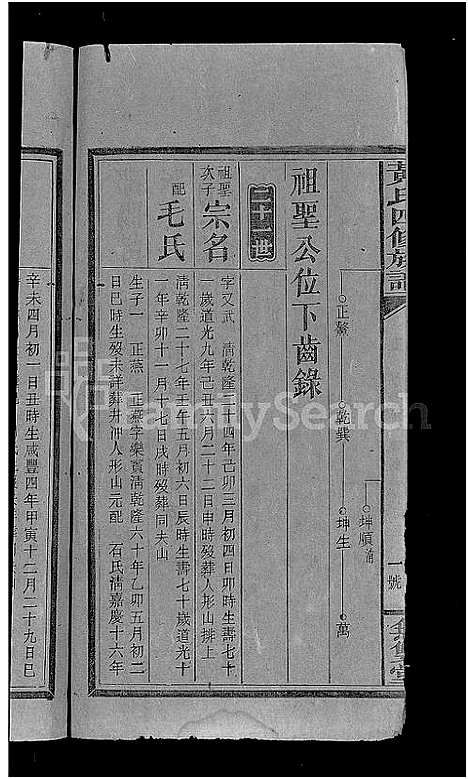 黃氏四修族譜
一號
○坤順
○正鰲 ○乾巽 ○坤生 ○萬
祖聖公位下齒錄
二十一世
祖聖次子 宗名 字又武 清乾隆二十四年己卯三月初四日卯時生壽七十
一歲道光九年己丑六月二十二日申時歿葬人形山排上
配 毛氏 清乾隆二十七年壬午五月初六日辰時生壽七十歲道光十
一年辛卯十一月十七日戌時歿葬同夫山
生子一 正燕 正燕字樂賓清乾隆六十年乙卯五月初二
日巳時生歿未詳葬井沖人形山元配 石氏清嘉慶十六年
辛未四月初一日丑時生咸豐四年甲寅十二月二十九日巳
FamilySearch